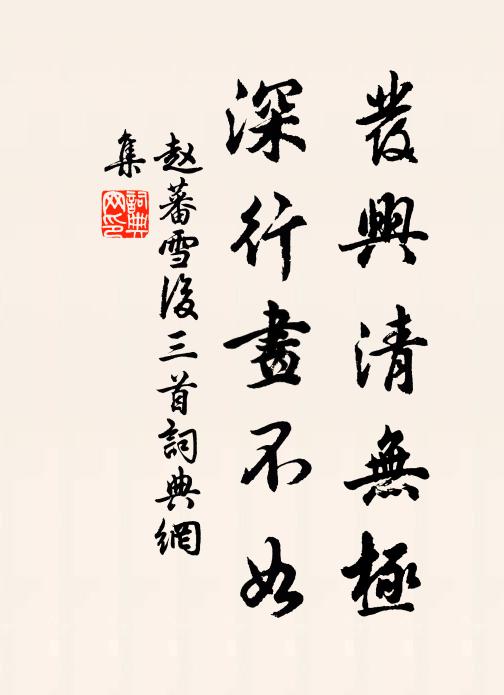 發興清無極
深行畫不如
赵蕃雪後三首詞典網
集
詞典
网印